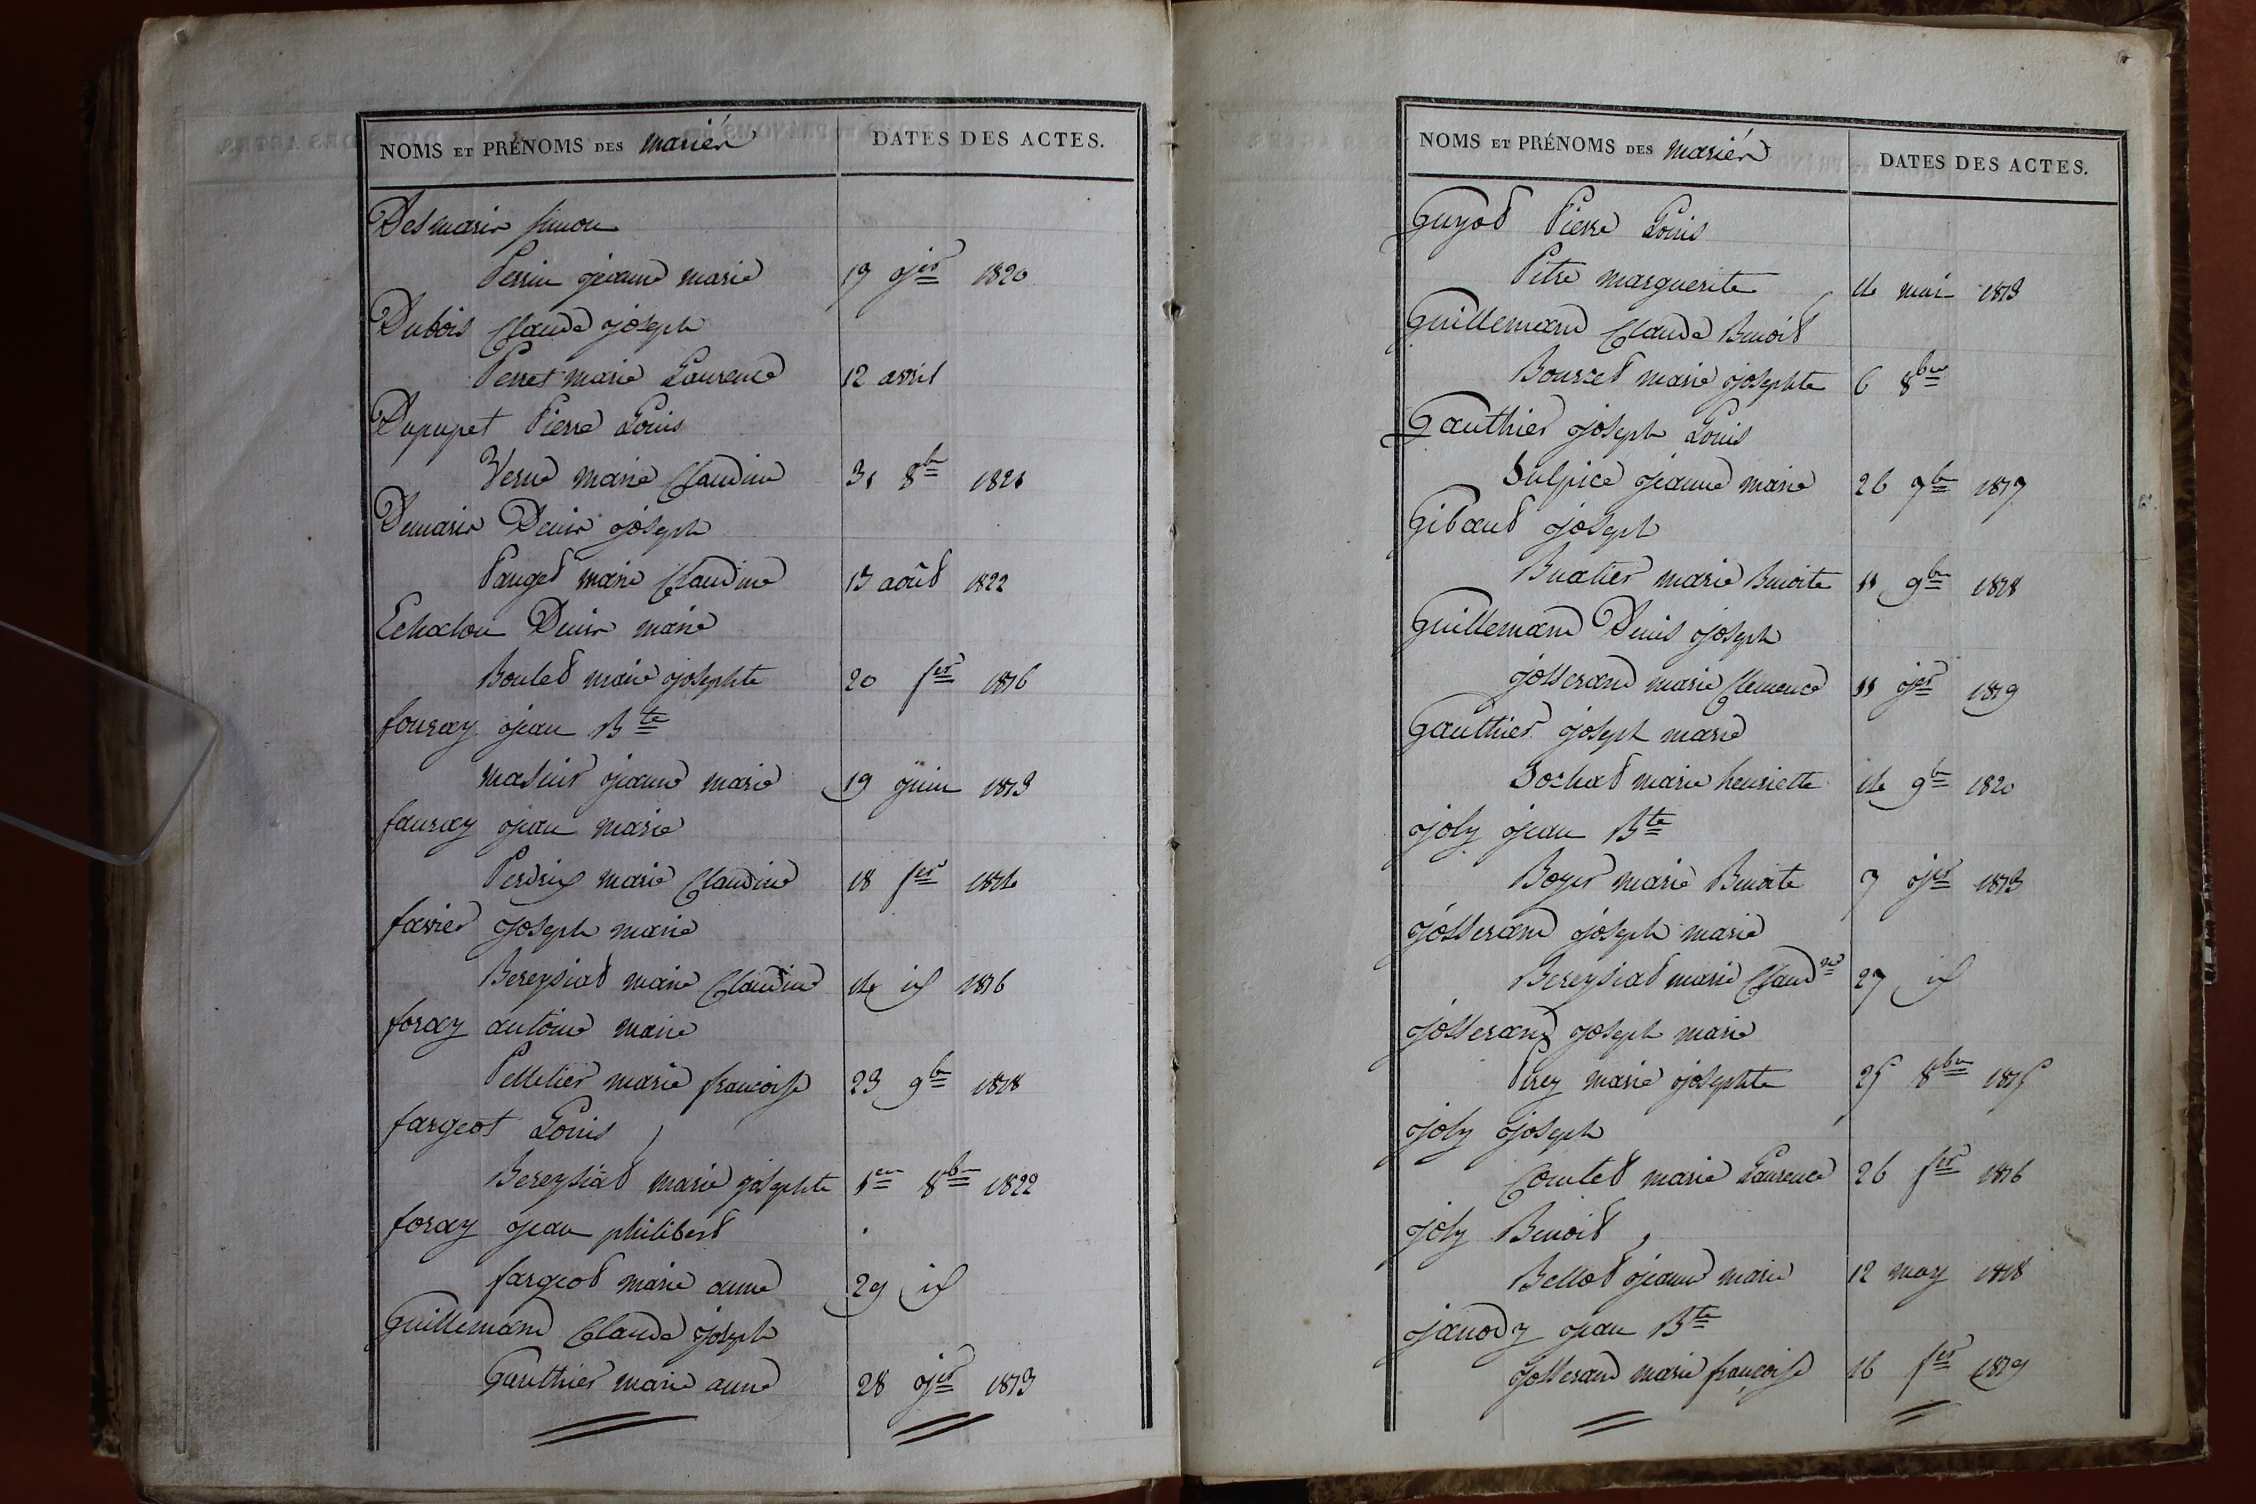 NOMS ET PRÉNOMS DES mariés DATES DES ACTES.
Desmaris simon
Perrin jeanne marie 19 jer 1820
Dubois Claude joseph
Perret marie Laurence 12 avril
Dupupet Pierre Louis
Verne marie Claudine 31 8bre 1821
Demaris Denis joseph
Pauget marie Claudine 13 août 1822
Echalou Denis marie
Boulet marie josephte 20 fer 1816
fouray jean Bte
jeanne marie 19 juin 1813
fauray jean marie
Perdrix marie Claudine 18 fer 1814
favier joseph marie
Bereysiat marie Claudine 14 x 1816
foray antoine marie
Pelletier marie francoise 23 9bre 1818
fargeot Louis
Bereysiat marie josephte 1er 8bre 1822
foray jean philibert
fargeot marie anne 29 x
Guillemand Claude joseph
Gauthier marie anne 28 jer 1813
NOMS ET PRÉNOMS DES mariés DATES DES ACTES.
Guyot Pierre Louis
Pitre marguerite 14 mai 1813
Guillemand Claude Benoit
Bourcet marie josephte 6 8bre
Gauthier joseph Louis
Sulpice jeanne marie 26 1817
Gibaud joseph
Buatier marie Benoite 11 9bre 1818
Guillemand Denis joseph
josserand marie Clemence 11 jer 1819
Gauthier joseph marie
Sochat marie henriette 14 9bre 1820
joly jean Bte
Boyer marie Benoite 7 jer 1813
josserand joseph marie
Bereysiat marie Claudne 27 x
josserand joseph marie
Pirey marie josephte 25 8bre 1815
joly joseph
Comtet marie Laurence 26 fer 1816
joly Benoit
Bellot jeanne marie 12 may 1818
janody jean Bte
josserand marie françoise 16 fer 1819